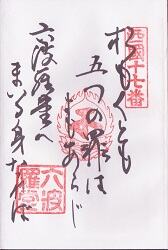 西國十七番
おもくとも
五つの罪は
よもあらじ
六波羅堂へ
まいる身なれば
六波羅堂